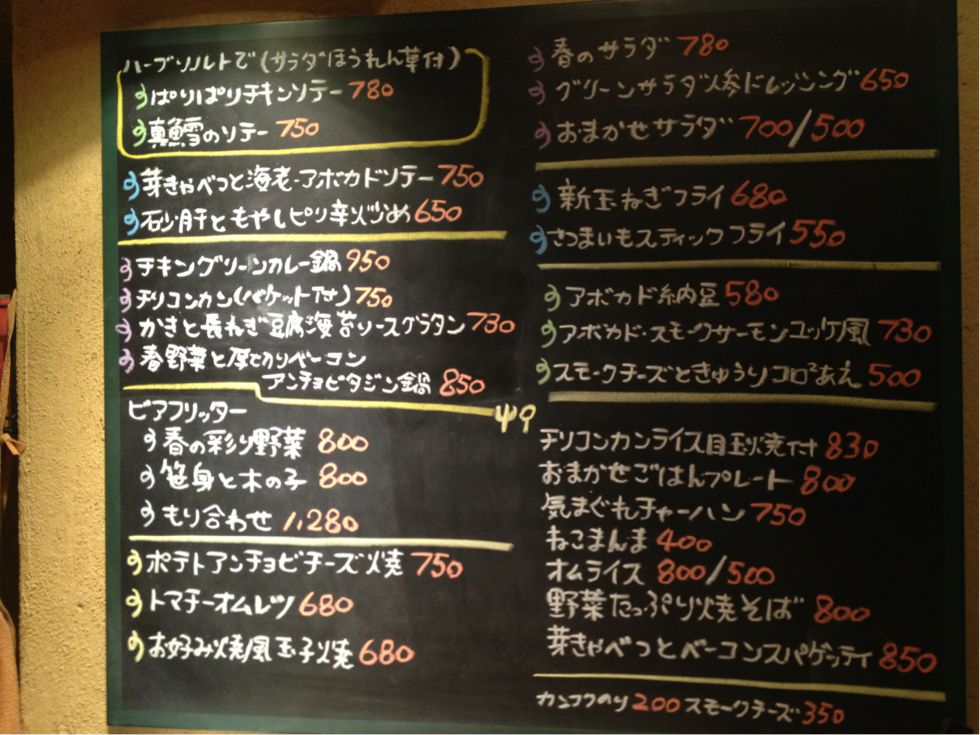 ハーブソルトで(サラダほうれん草付)
ぱりぱりチキンソテー 780
真鱈のソテー 750
芽きゃべつと海老・アボカドソテー 750
砂肝ともやしピリ辛炒め 650
チキングリーンカレー鍋 950
チリコンカン(バケット付) 750
かきと長ねぎ豆腐海苔ソースグラタン 730
春野菜と厚切りベーコン
アンチョビタジン鍋 850
ビアフリッター
春の彩り野菜 800
笹身と木の子 800
もり合わせ 1,280
ポテトアンチョビチーズ焼 750
トマチーオムレツ 680
お好み焼風玉子焼 680
春のサラダ 780
グリーンサラダ人参ドレッシング 650
おまかせサラダ 700/500
新玉ねぎフライ 680
さつまいもスティックフライ 550
アボカド納豆 580
アボカド・スモークサーモンユッケ風 730
スモークチーズときゅうりコロコロあえ 500
チリコンカンライス目玉焼付 830
おまかせごはんプレート 800
気まぐれチャーハン 750
ねこまんま 400
オムライス 800/500
野菜たっぷり焼そば 800
芽きゃべつとベーコンスパゲッティ 850
カンコクのり 200 スモークチーズ 350